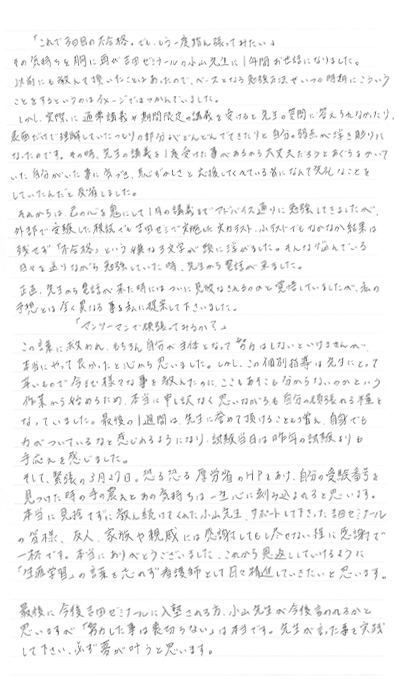 「これで3回目の不合格。でも、もう一度頑張ってみたい」
その気持ちを胸に再び吉田ゼミナールの小山先生に1年間お世話になりました。
以前にも教えて頂いたことはあったので、ベースとなる勉強方法やいつの時期にこういう
ことをするというのはイメージではつかんでいました。
しかし、実際に通常講義や期間限定の講義を受けると先生の質問に答えられなかったり、
表面だけで理解していたつもりの部分がどんどんでてきたりと自分の弱点が浮き彫りに
なったのです。その時、先生の講義を1度受けた事があるから大丈夫だろうとあぐらをかいて
いた自分がいた事に気づき、恥ずかしさと応援してくれている皆になんて失礼なことを
していたんだと反省しました。
それからは、心を鬼にして1月の講義までアドバイス通りに勉強してきましたが、
外部で受験した模試でも吉田ゼミで実施した実力テスト、小テストでもなかなか結果は
残せず「不合格」という嫌な3文字が頭に浮かびました。そんな悩んでいる
日々を送りながら勉強していた時、先生から電話が来ました。
正直、先生から電話が来た時にはついに見放なされるのかと覚悟していましたが、私の
予想とは全く異なる事を私に提案して下さいました。
「マンツーマンで頑張ってみるか？」
この言葉に救われ、もちろん自分が主体となって努力はしないといけませんが、
本当にやって良かったと心から思いました。しかし、この個別指導は先生にとって
辛いもので今まで様々な事を教えたのに、ここもあそこも分からないのかという
作業から始めるため、本当に申し訳なく思いながらも自分の頑張れる糧と
なっていました。最後の1週間は、先生に誉めて頂けることも増え、自身でも
力がついているなと感じれるようになり、試験当日は昨年の試験よりも
手応えを感じました。
そして、緊張の3月27日。恐る恐る厚労省のHPをあけ、自分の受験番号を
見つけた時の手の震えとあの気持ちは一生心に刻み込まれると思います。
本当に見捨てずに教え続けてくれた小山先生、サポートして下さった吉田ゼミナール
の皆様、友人、家族や親戚には感謝してもし尽せない程に感謝で
一杯です。本当にありがとうございました。これから恩返ししていけるように
「生涯学習」の言葉を忘れず看護師として日々精進していきたいと思います。
最後に今後吉田ゼミナールに入塾される方、小山先生が今後言われるかと
思いますが「努力した事は裏切らない」は本当です。先生が言った事を実践
して下さい、必ず夢が叶うと思います。